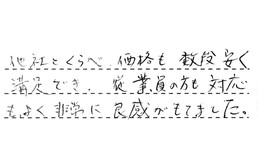 他社とくらべ 価格も 数段 安く
満足でき、従業員の方も 対応
もよく 非常に 良感がもてました。